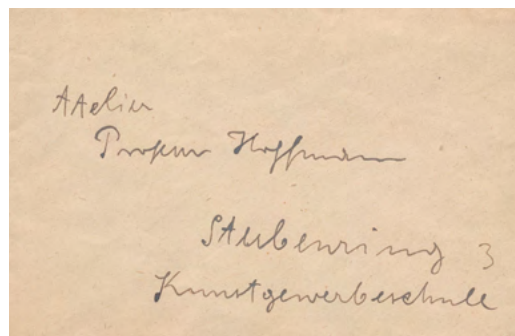 Atelier
Professor Hoffmann
Stubenring 3
Kunstgewerbeschule